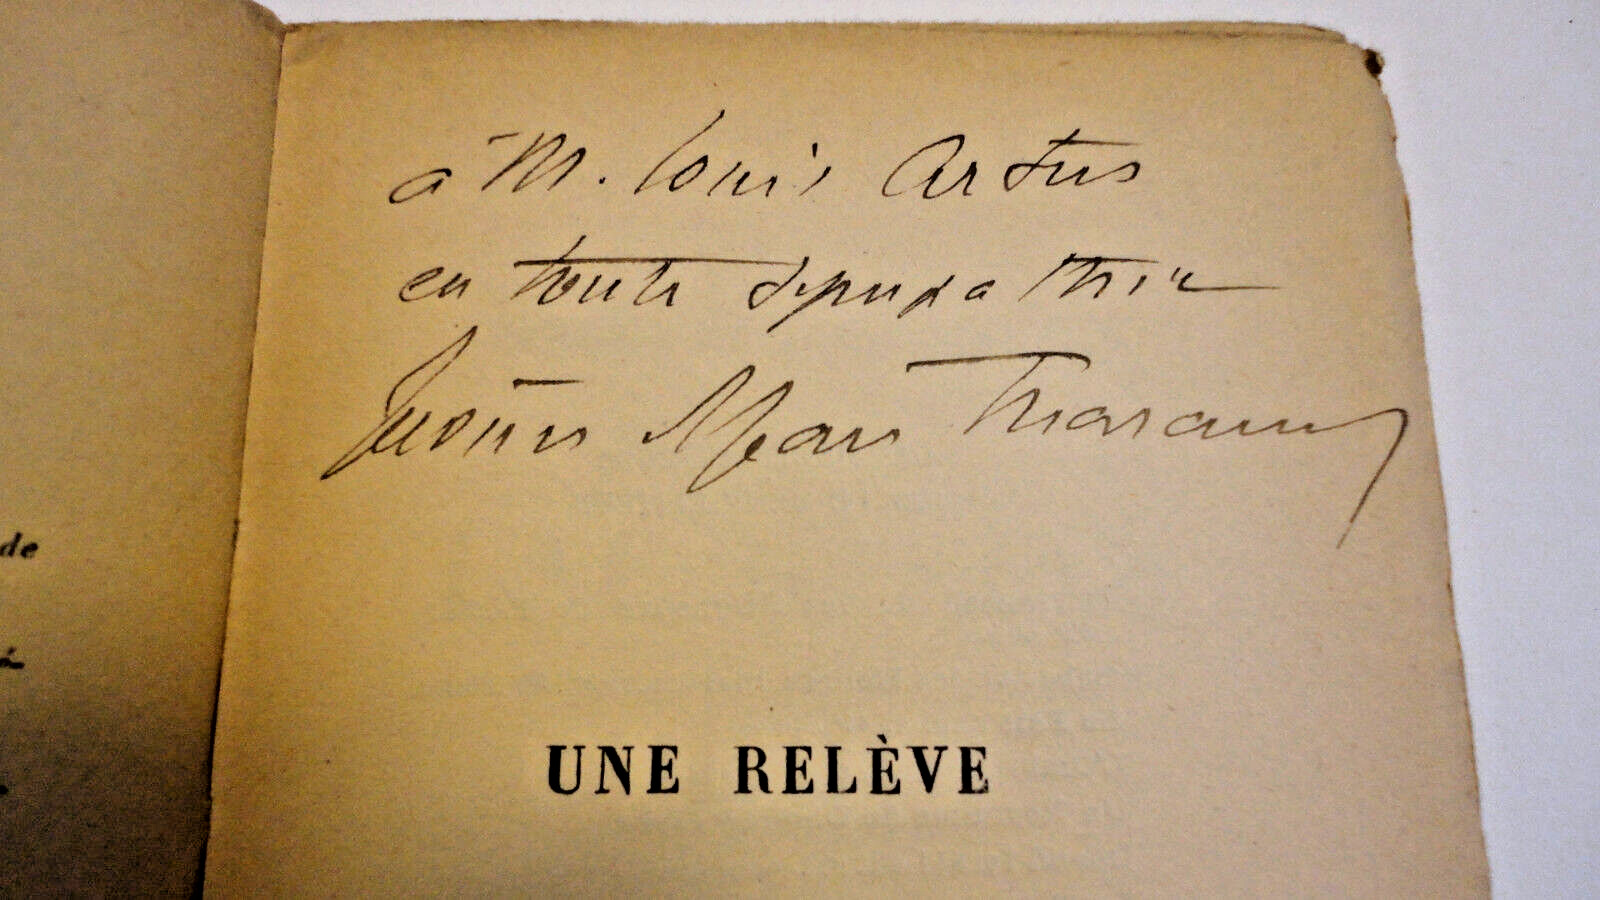 à M. Louis Artus
en toute sympathie
Jérôme Jean Tharaud
UNE RELÈVE
de